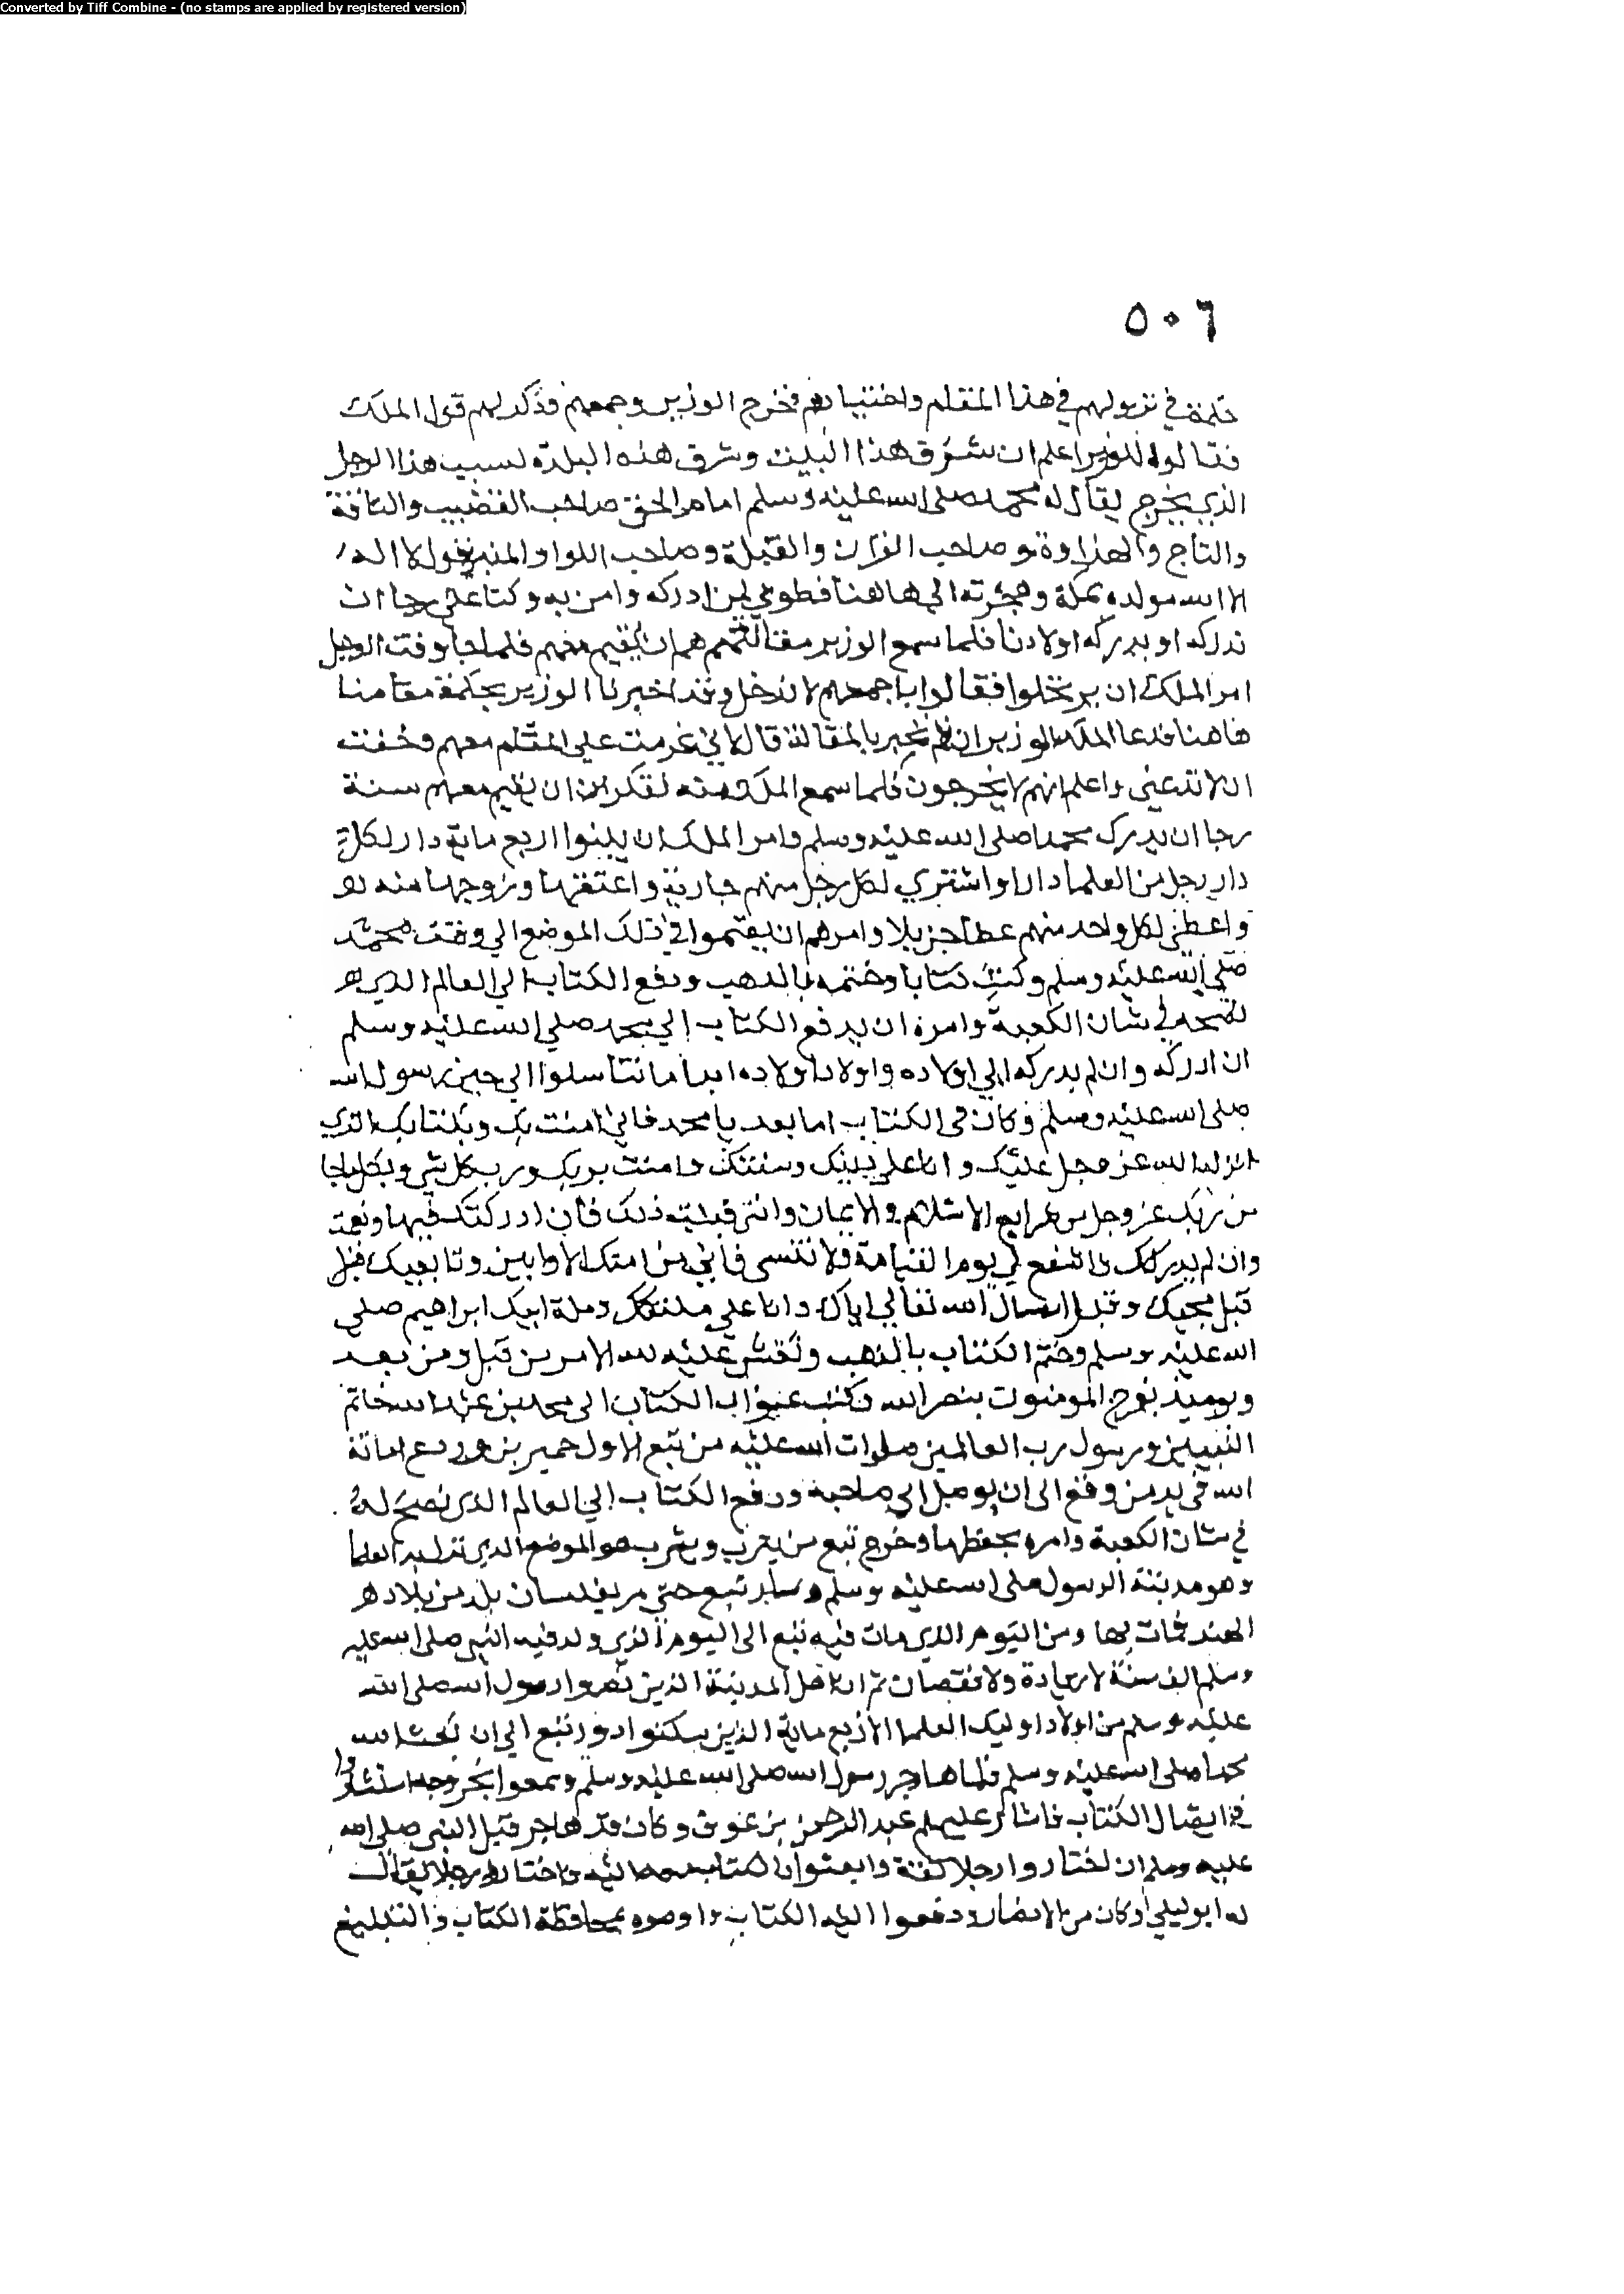 Converted by Tiff Combine - (no stamps are applied by registered version)
٥٠٦
حكمة في نزولهم في هذا المقام واختيارهم فخرج الوزير وجمعهم وذكر لهم قول الملك
فقالوا للوزير اعلم ان شرف هذا البيت وشرف هذه البلدة بسبب هذا الرجل
الذي يخرج يقال له محمد صلى الله عليه وسلم امام الحق صاحب القضيب والناقة
والتاج والهراوة وصاحب القران والقبلة وصاحب اللوا والمنبر يقول لا اله
الا الله مولده بمكة وهجرته الى هاهنا فطوبى لمن ادركه وامن به وكنا على رجا ان
ندركه او يدركه اولادنا فلما سمع الوزير مقالتهم هم ان يقيم معهم فلما جا وقت الرحيل
امر الملك ان يرتحلوا فقالوا باجمعهم لا ندخل وقد اخبرنا الوزير بحكمة مقامنا
هاهنا فدعا الملك الوزير ان لم تخبر بالمقالة قال لاني عزمت على المقام معهم وخفت
ان لا تدعني واعلم انهم لا يخرجون فلما سمع الملك منه تفكر ان يقيم معهم سنة
رجا ان يدرك محمدا صلى الله عليه وسلم وامر الملك ان يبنوا اربع ماية دار لكل
دار رجل من العلما دارا واشتري لكل رجل منهم جارية واعتقها وزوجها منه
واعطى لكل واحد منهم عطا جزيلا وامرهم ان يقيموا في ذلك الموضع الي وقت محمد
صلى الله عليه وسلم وكتب كتابا وختمه بالذهب ودفع الكتاب الي العالم الذي
نصحه في شان الكعبة وامره ان يدفع الكتاب الي محمد صلي الله عليه وسلم
ان ادركه وان لم يدركه الي اولاده واولاد اولاده ابدا ما تناسلوا الي حين رسول الله
صلى الله عليه وسلم وكان في الكتاب اما بعد يا محمد فاني امنت بك وبكتابك الذي
انزله الله عز وجل عليك وانا على دينك وسنتك وامنت بربك ورب كل شي وبكل ما جا
من ربك عز وجل من شرايع الاسلام والايمان واني قبلت ذلك فان ادركتك فبها ونعمت
وان لم ادركك فاشفع لي يوم القيامة ولا تنسى فاني من امتك الاوابين وتابعيك قبل
قبل مجيك وقبل ارسال الله تعالي اياك وانا على ملتك وملة ابيك ابراهيم صلي
الله عليه وسلم وختم الكتاب بالذهب ونقش عليه لله الامر من قبل ومن بعد
ويوميذ يفرح المومنون بنصر الله وكتب عنوان الكتاب الى محمد بن عبد الله خاتم
النبيين ورسول رب العالمين صلوات الله عليه من تبع الاول حمير بن وردع امانة
الله في يد من وقع الى ان يوصل الي صاحبه ودفع الكتاب الي العالم الذي نصح له
في شان الكعبة وامره بحفظها وخرج تبع من يثرب ويثرب هو الموضع الذي نزل به العلما
وهو مدينة الرسول صلى الله عليه وسلم وسار تبع حتى مر بغلسان بلد من بلاد
الهند فمات بها ومن اليوم الذي مات فيه تبع الى اليوم الذي ولد فيه النبي صلى الله عليه
وسلم الف سنة لا زيادة ولا نقصان ثم ان اهل المدينة الذين نصروا رسول الله صلى الله
عليه وسلم من اولاد اوليك العلما الاربع ماية الذين سكنوا دور تبع الي ان بعث الله
محمدا صلى الله عليه وسلم فلما هاجر رسول الله صلى الله عليه وسلم وسمعوا بخروجه استشاروا
في ايصال الكتاب فاشار عليهم عبد الرحمن بن عوف وكان قد هاجر قبل النبي صلى الله
عليه وسلم ان اختاروا رجلا ثقة وابعثوا بالكتاب معه اليه فاختاروا رجلا يقال
له ابو ليلي وكان من الانصار ودفعوا اليه الكتاب واوصوه بمحافظة الكتاب والتبليغ